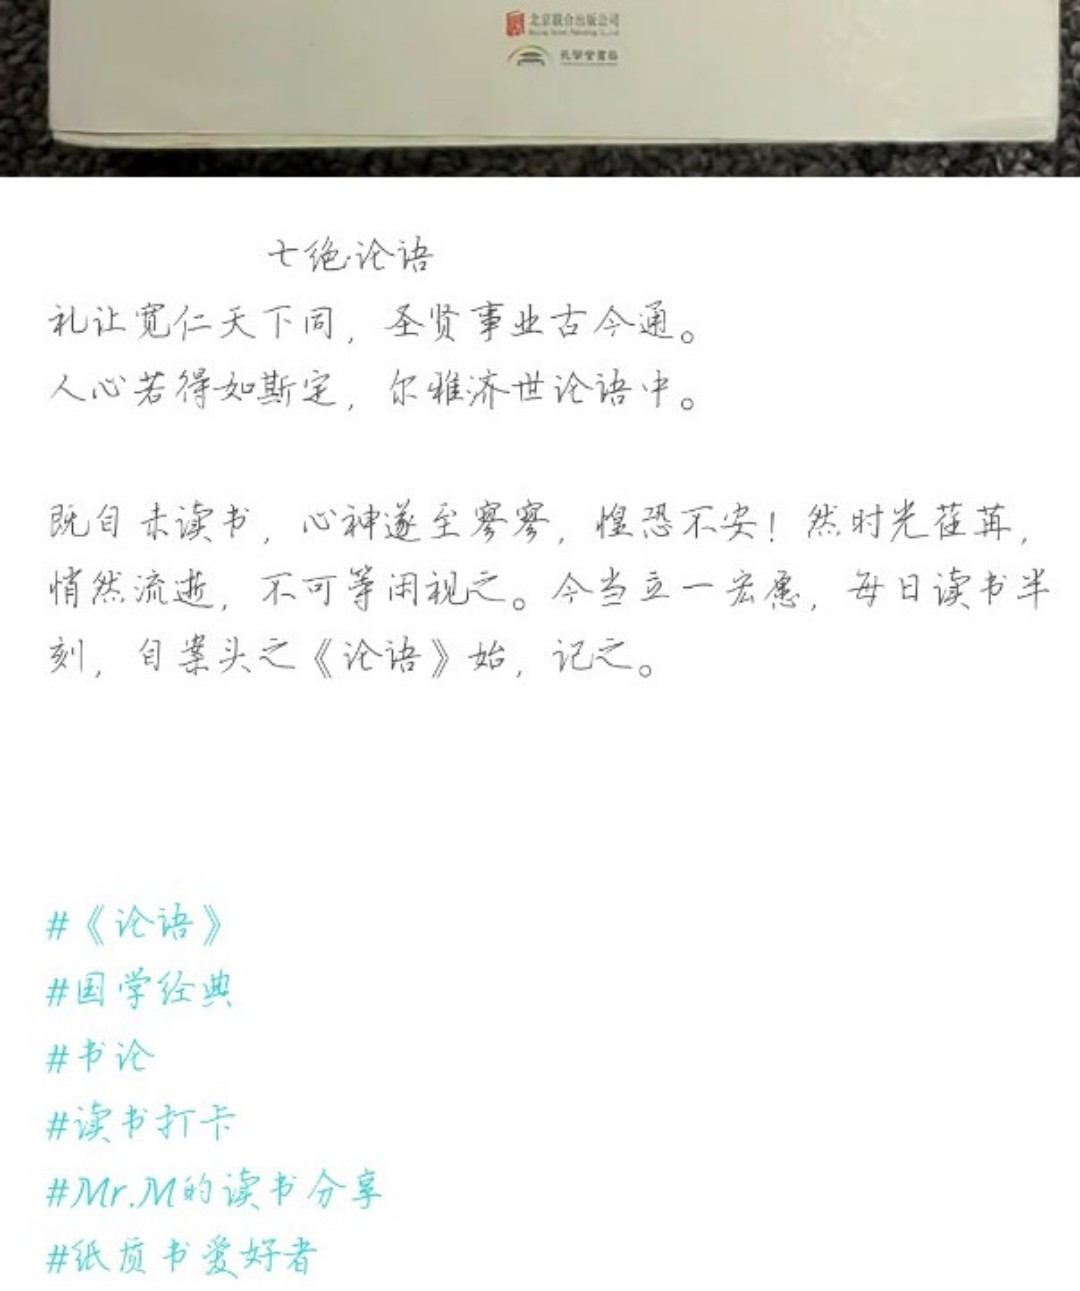 北京联合出版公司
孔學堂書局
七绝·论语
礼让宽仁天下同，圣贤事业古今通。
人心若得如斯定，尔雅济世论语中。
既自未读书，心神遂至寥寥，惶恐不安！然时光荏苒，
悄然流逝，不可等闲视之。今当立一宏愿，每日读书半
刻，自案头之《论语》始，记之。
#《论语》
#国学经典
#书论
#读书打卡
#Mr.M的读书分享
#纸质书爱好者